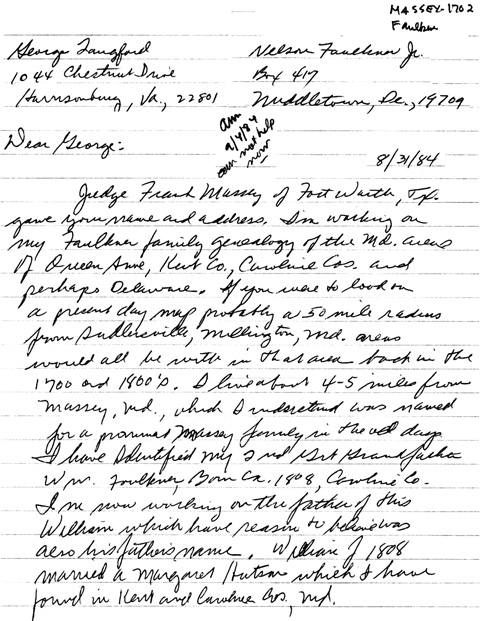 MASSEY-1702
Faulkner
George Langford
1044 Chestnut Drive
Harrisonburg, Va., 22801
Nelson Faulkner Jr.
Box 417
Middletown, De., 19709
ans
9/4/84
can not help
now
Dear George:
8/31/84
Judge Frank Massey of Fort Worth, Tx.
gave your name and address. I'm working on
my Faulkner family genealogy of the Md. areas
of Queen Anne, Kent Co., Caroline Cos. and
perhaps Delaware. If you were to look on
a present day map probably a 50 mile radius
from Sudlersville, Millington, Md. areas
would all be with in that area back in the
1700 and 1800's. I live about 4-5 miles from
Massey, Md., which I understand was named
for a prominent Massey family in the old days
I have Identified my 2nd Grt Grandfather
Wm. Faulkner, Born Ca. 1808, Caroline Co.
I'm now working on the father of this
William which have reason to believe was
also his father's name. William of 1808
married a Margaret Hutson which I have
found in Kent and Caroline Cos, Md.